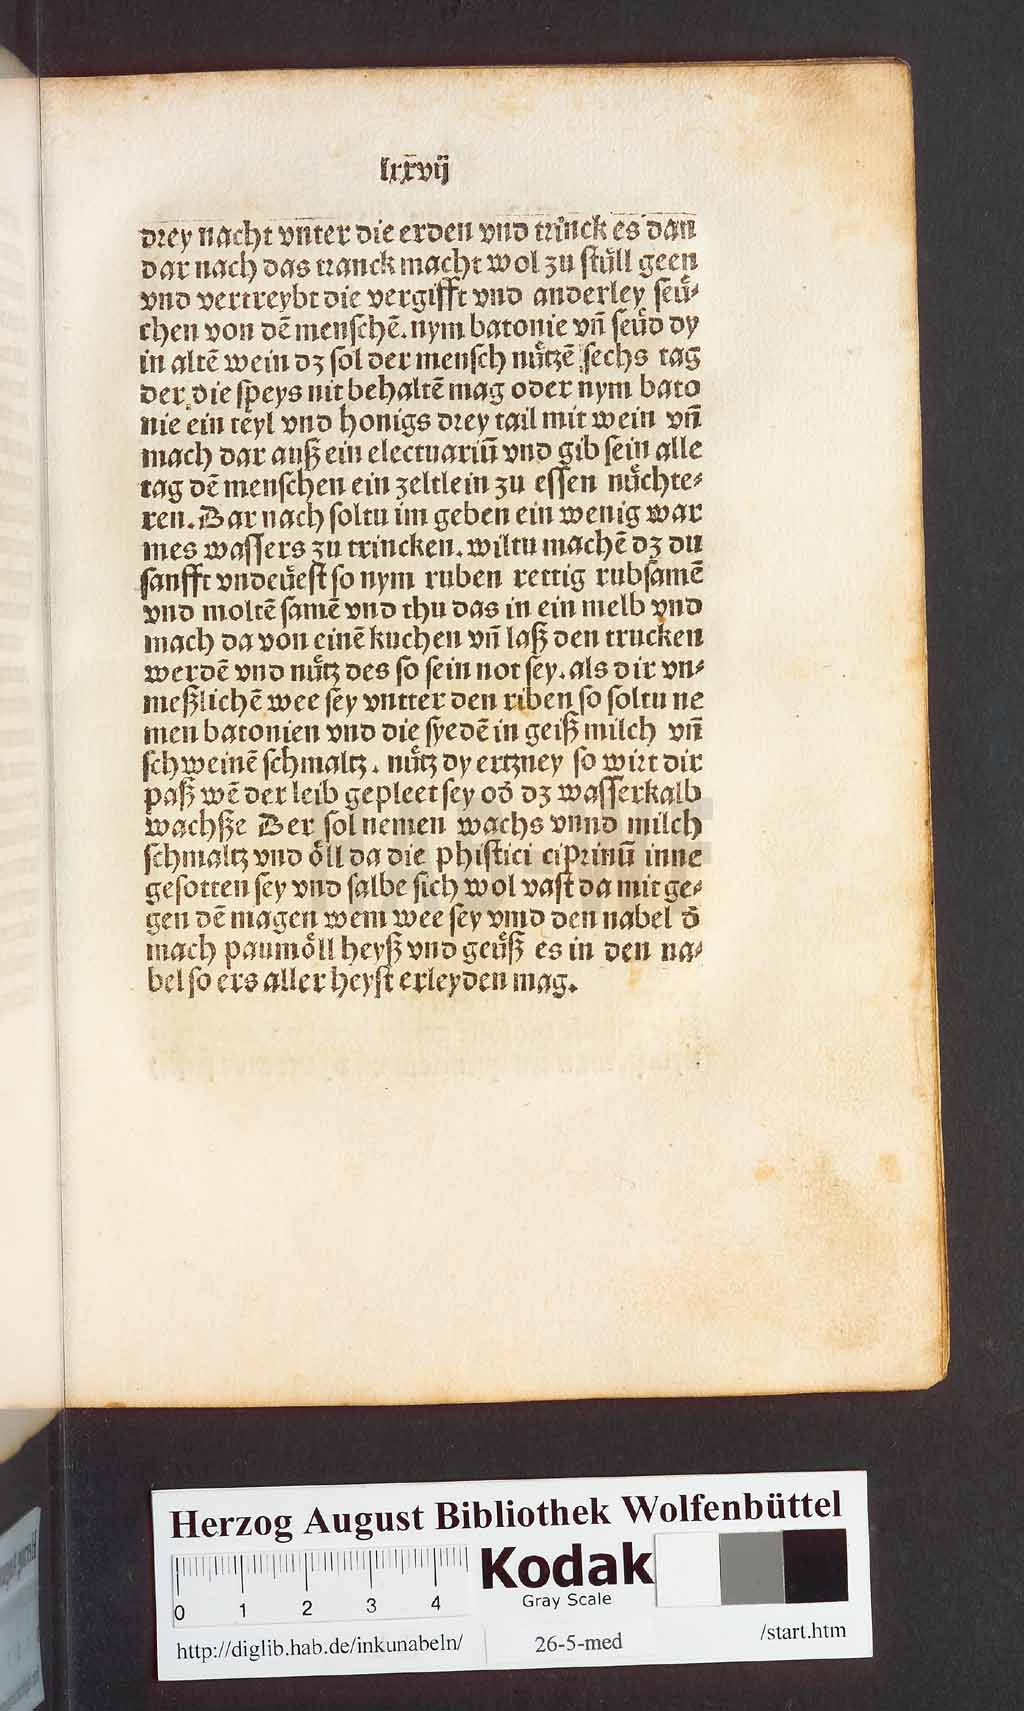 lxxvij
drey nacht vnter die erden vnd trinck es dan
dar nach das tranck macht wol zu stůll geen
vnd vertreybt die vergifft vnd anderley seů⸗
chen von dē menschē. nym batonie vn̄ seůd dy
in altē wein dz sol der mensch nůtzē sechs tag
der die speys nit behaltē mag oder nym bato
nie ein teyl vnd honigs drey tail mit wein vn̄
mach dar auß ein electuariū vnd gib sein alle
tag dē menschen ein zeltlein zu essen nůchte⸗
ren. Dar nach soltu im geben ein wenig war
mes wassers zu trincken. wiltu machē dz du
sanfft vndeůest so nym ruben rettig rubsamē
vnd moltē samē vnd thu das in ein melb vnd
mach da von einē kuchen vn̄ laß den trucken
werdē vnd nůtz des so sein not sey. als dir vn⸗
meßlichē wee sey vntter den riben so soltu ne
men batonien vnd die syedē in geiß milch vn̄
schweinē schmaltz. nůtz dy ertzney so wirt dir
paß wē der leib gepleet sey od̄ dz wasserkalb
wachße Der sol nemen wachs vnnd milch
schmaltz vnd o̊ll da die phistici ciprinū inne
gesotten sey vnd salbe sich wol vast da mit ge⸗
gen dē magen wem wee sey vmd den nabel d̄
mach paumo̊ll heyß vnd geůß es in den na⸗
bel so ers aller heyst erleyden mag.
Herzog August Bibliothek Wolfenbüttel
Kodak
Gray Scale
0 1 2 3 4
http://diglib.hab.de/inkunabeln/ 26-5-med /start.htm